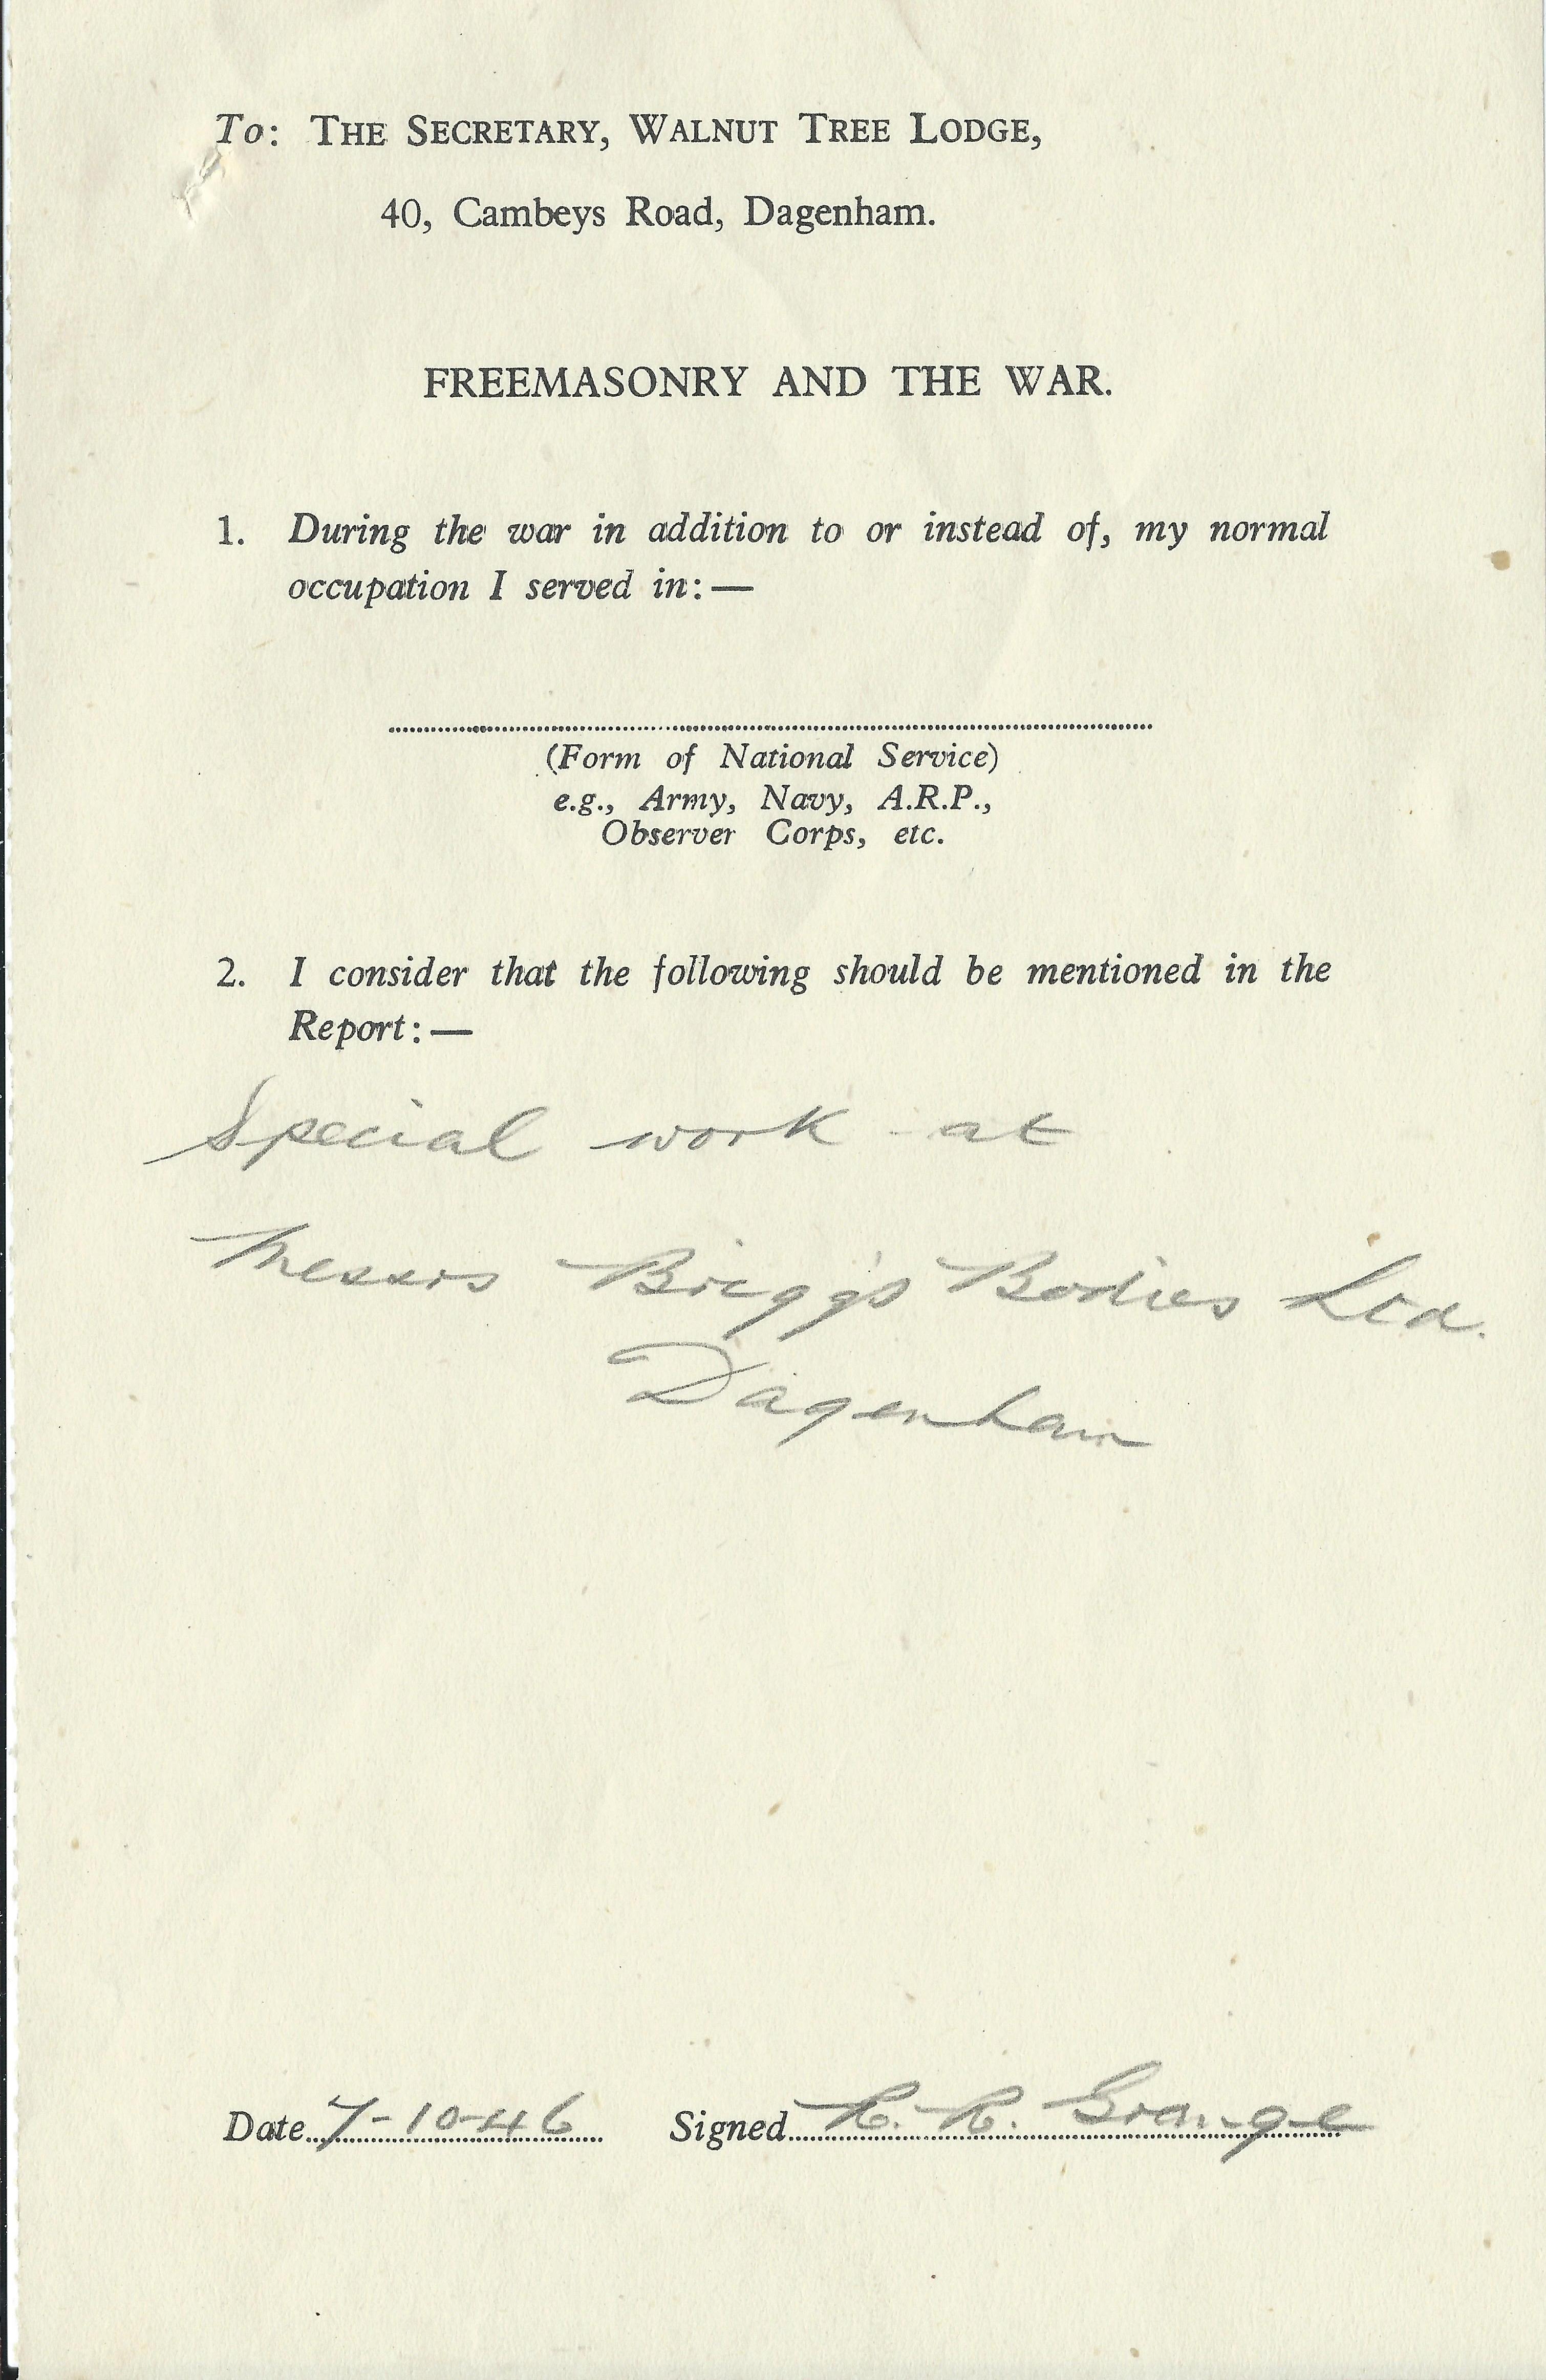 To: THE SECRETARY, WALNUT TREE LODGE,
40, Cambeys Road, Dagenham.
FREEMASONRY AND THE WAR.
1. During the war in addition to or instead of, my normal
occupation I served in:—
(Form of National Service)
e.g., Army, Navy, A.R.P.,
Observer Corps, etc.
2. I consider that the following should be mentioned in the
Report:—
Special work at
Messrs Brigg's Bodies Ltd.
Dagenham
Date 7-10-46 Signed Grange